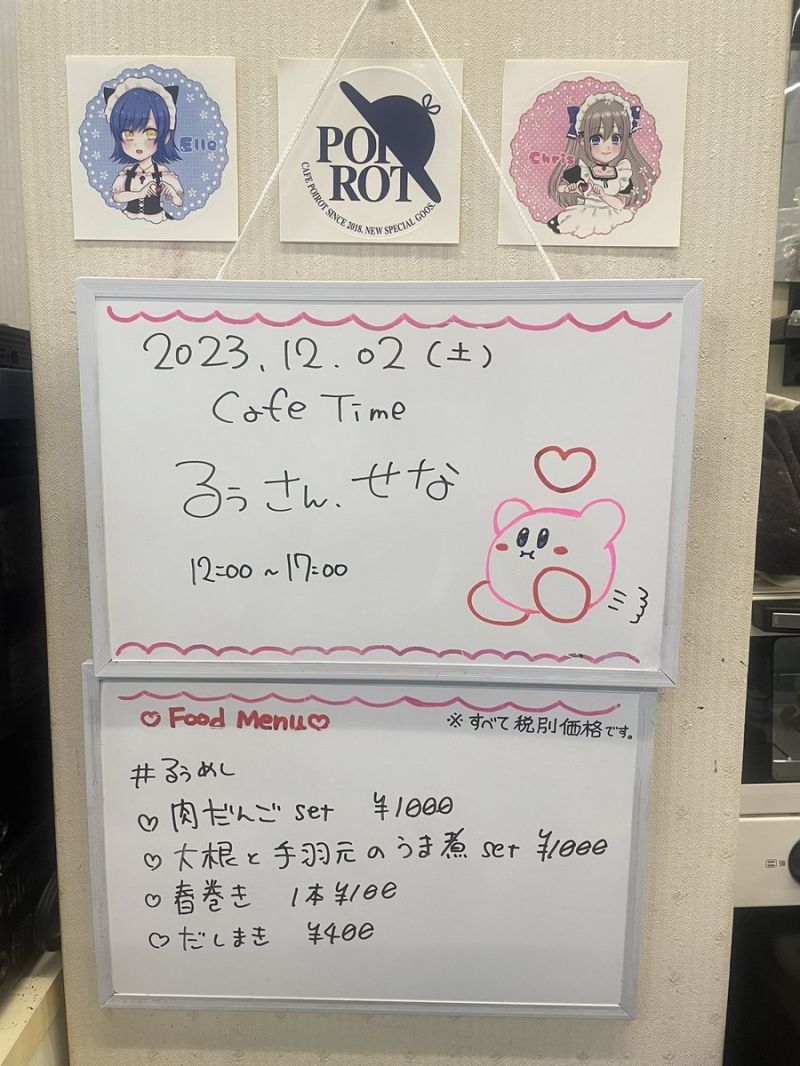 Ella
POI
ROT
CAFE POIROT SINCE 2018. NEW SPECIAL GOOS.
Chris
2023.12.02(土)
Cafe Time
るぅさん、せな
12:00~17:00
♡Food Menu♡
※すべて税別価格です。
#るぅめし
♡肉だんごset ¥1000
♡大根と手羽元のうま煮set ¥1000
♡春巻き 1本¥100
♡だしまき ¥400